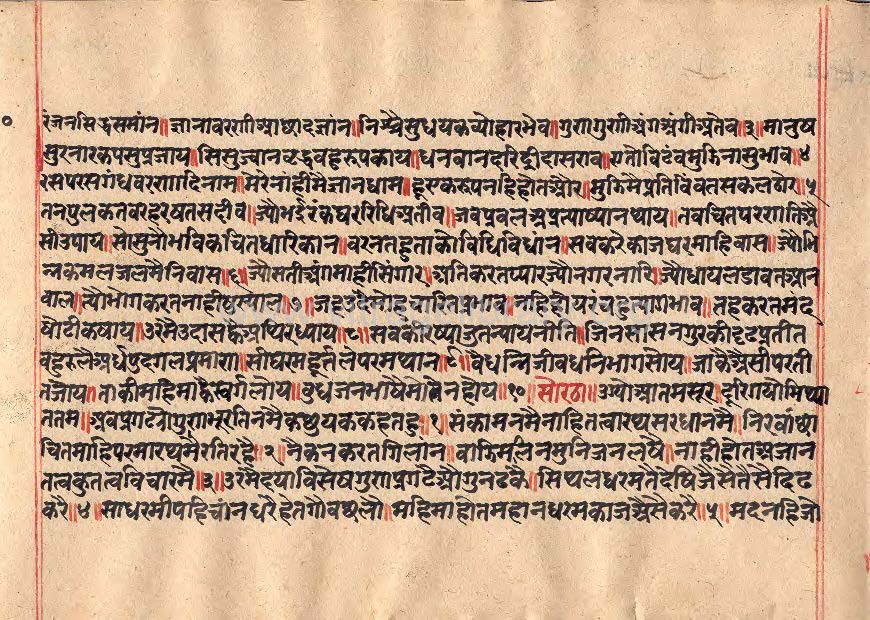 रंजनसिद्धसमांन॥ज्ञानावरणीआष्ठादज्ञांन॥निश्चैसुधयकव्योहारभेव॥गुणगुणीअंगअंगीअतेव॥३॥मानुष
सुरनारकपसुप्रजाय॥सिसुज्वानवृद्धवहुरुपकाय॥धनवानदरिद्रीदासराव॥एतोविडंवमुझिनासुभाव॥४
रसपरसगंधवरणादिनाम॥मेरेनांहीमैजानधाम॥हूएकरुपनहिहोतऔर॥मुझिमैप्रतिविंवतसकलठोर॥५
तनपुलकतवरहरषतसदीव॥ज्यौभईरंकघररिधिअतीव॥जवप्रवलअप्रत्याष्यानथाय॥तवचितपरणतिअै
सीउपाय॥सोसुनौभविकचितधारिकान॥वरनतहुताकोविधिविधान॥सवकरैकाजघरमाहिवास॥ज्यौभि
न्नकमलजलमैनिवास॥६॥ज्यौसतीअंगमाहीसिंगार॥अतिकरतप्यारज्यौनगरनारि॥ज्यौधायलडावतआन
वाल॥त्यौभोगकरतनाहीषुस्याल॥७॥जहउदैमोहचारितप्रभाव॥नहिहोयरंचहूत्यागभाव॥तहकरतमंद
षोटीकषाय॥उरमैउदासह्वैअथिरध्याय॥८॥सवकीरष्याजुतन्यायनीति॥जिनसासनगुरकीदृढप्रतीत
वहुरुलैअर्धपुदगलप्रमाण॥सीघ्रमहूर्तलेपरमथान॥९॥वेधन्निजीवधनिभागसोय॥जाकैअैसीपरती
तजोय॥ताकीमहिमाह्वैस्वर्गलोय॥वुधजनभाषैमोतैनहोय॥१०॥सोरठा॥उग्यौआतमसूर॥दूरिगयौमिथ्या
ततम॥अवप्रगटेगुणभूरतिनमैकछुयककहतहु॥१॥संकामनमैनाहितत्वारथसरधानमै॥निरवांछा
चितमाहिपरमारथमैरतिरहै॥२॥नैकनकरतगिलांन॥वाह्यिमलनमुनिजनलषै॥नाहीहोतअजान
तत्वकुतत्वविचारमै॥३॥उरमैदयाविसेषगुणप्रगटैऔगुनढकै॥सिथलधरमतैदेषिजैसैतैसैदिढ
करै॥४॥साधरमीपहिचांनधरैहेतगौवछलौ॥महिमाहोतमहानधरमकाजअैसेकरै॥५॥मदनहिजो